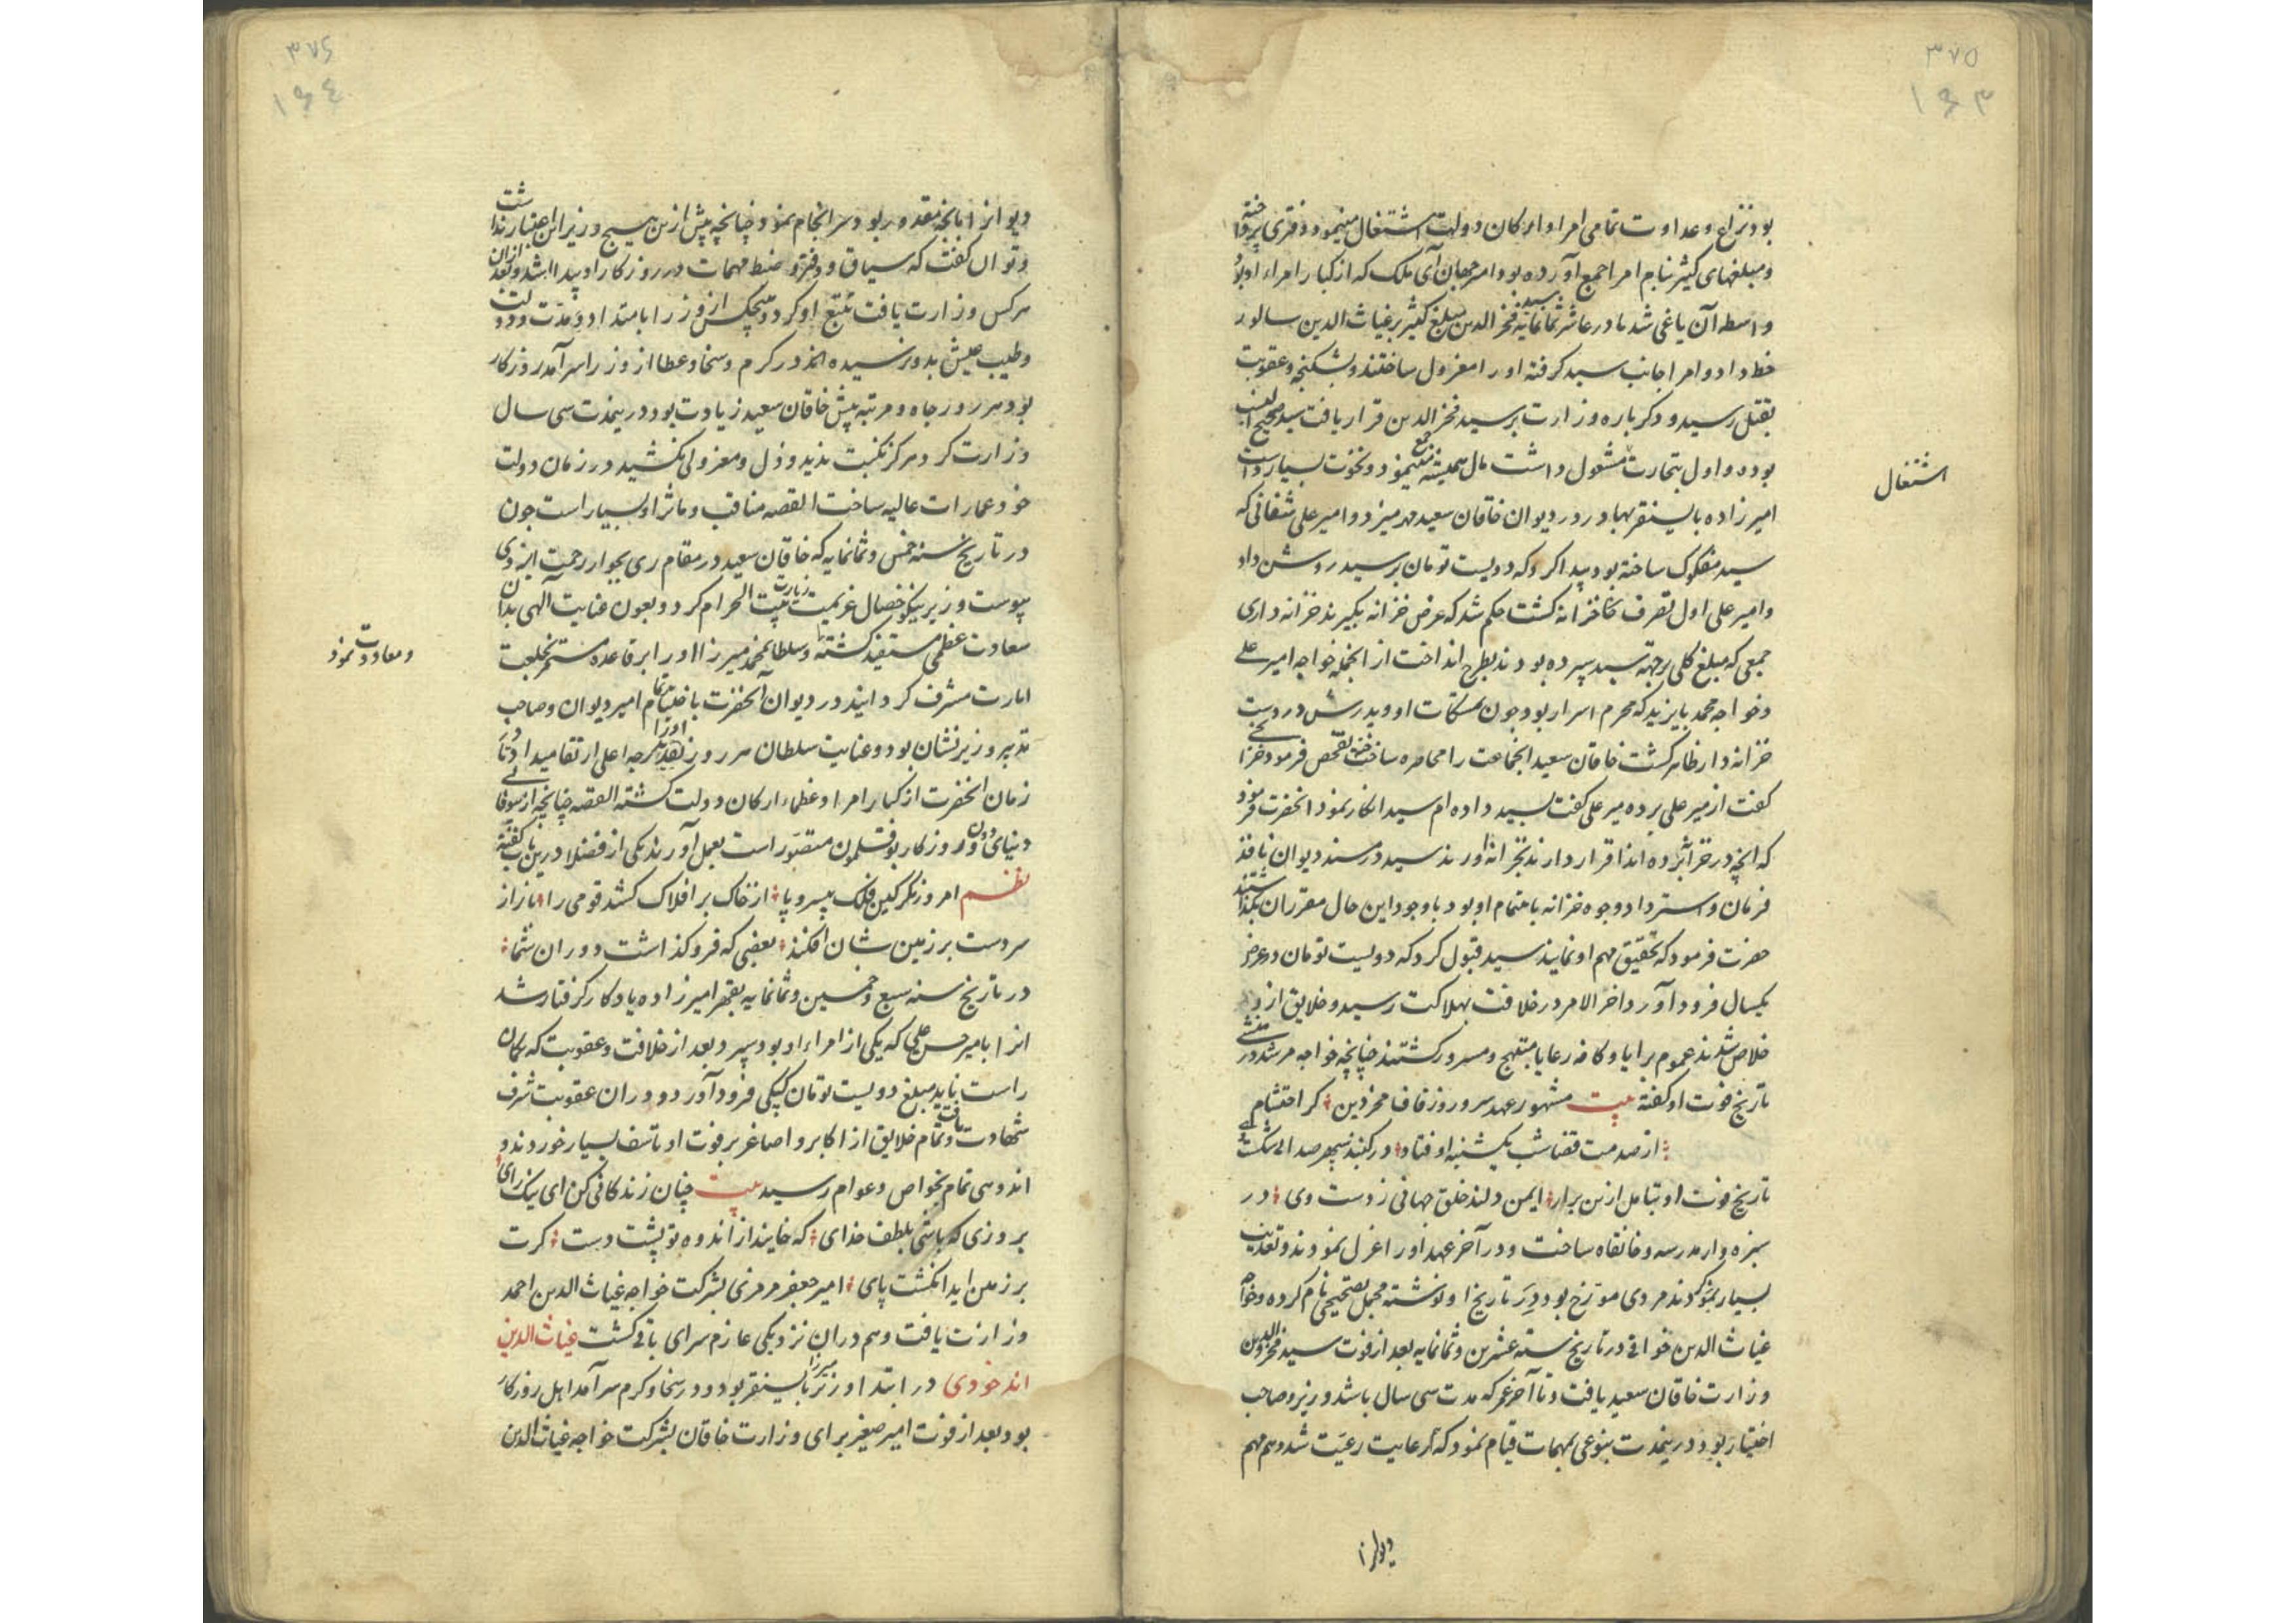 ۳۷۵
۱۶۳
بود و نزاع و عداوت تمامی امرا و ارکان دولت اشتغال مینمود و دفتری پرداخته
و مبلغهای کثیر بنام امرا جمع آورده بود امیر جهان آی ملک که از کبار امراء او بود
واسطه آن یاغی شد تا در عاشر ثمانمایه سید فخر الدین مبلغ کثیر بر غیاث الدین سالار
خط داد و امرا جانب سید گرفته او را معزول ساختند و بشکنجه و عقوبت
بقتل رسید و دکر باره وزارت بر سید فخر الدین قرار یافت سید صحیح النسب
بوده و اول بتجارت مشغول داشت مال همیشه جمع مینمود و نخوت بسیار داشت
اشتغال
امیرزاده بایسنقر بهادر در دیوان خاقان سعید مهر میزد و امیر علی شقانی که
سید مفلوک ساخته بود پیدا کرد که دویست تومان بر سید روشن داد
و امیر علی اول تصرف خزانه کشت حکم شد که عرض خزانه بکیرند خزانه داری
جمعی که مبلغ کلی بوجهة سید سپرده بودند بطرح انداخت از انجمله خواجه امیر علی
و خواجه محمد بایزید که محرم اسرار بود چون تمسکات او و پدرش در دست
خزانه دار ظاهر کشت خاقان سعید انجماعت را محاصره ساخته تفحص فرمود خزانچی
کفت از میر علی برده میر علی کفت بسید داده ام سید انکار نمود انحضرت فرمود
که انچه در خزانه برده اند اقرار دارند بخزانه آورند سید در مسند دیوان نافذ
فرمان و استرداد وجوه خزانه باهتمام او بود با وجود این حال مقرران نکذاشتند
حضرت فرمود که تحقیق مهم او نمایند سید قبول کرد که دویست تومان در عرض
یکسال فرود آورد اخر الامر در خلافت بهلاکت رسید و خلایق از و
خلاص شدند عموم برایا و کافه رعایا مبتهج و مسرور کشتند چنانچه خواجه مرشد در
تاریخ فوت او کفته بیت مشهور عهد سرور روز قاف فخر دین کر احتشام
از صدمت قضا شب یکشنبه او فتاد در کنبد سپهر صدای شکست
تاریخ فوت او بتامل ازین برار ایمن دلند خلق جهانی ز دست وی در
سبزه وار مدرسه و خانقاه ساخت و در آخر عهد او را عزل نمودند و تعذیب
بسیار نمودند مردی مورخ بود در تاریخ او نوشته مجمل فصیحی نام کرده و خواجه
غیاث الدین خوافی در تاریخ سنه عشرین و ثمانمایه بعد از فوت سید فخر الدین
وزارت خاقان سعید یافت و تا آخر عمر که مدت سی سال باشد وزیر و صاحب
اختیار بود و درینمدت بنوعی بمهمات قیام نمود که هم رعایت رعیت شد و هم مهم
دیوانرا
۳۷۶
۱۶۴
دیوانرا بانچه مقدور بود سرانجام نمود چنانچه پیش ازین هیچ وزیر این اعتبار نداشت
و توان کفت که سیاق و دفتر و ضبط مهمات در روزکار او پیدا شد و بعد ازان
هرکس وزارت یافت تتبع او کرد و هیچکس از وزرا بامتداد و مدت دولت
و طیب عیش بدو نرسیده اند در کرم و سخا و عطا از وزرا سرآمد روزکار
بود هر روز جاه و مرتبه پیش خاقان سعید زیادت بود درینمدت سی سال
وزارت کرد هرکز نکبت ندید و ذل و معزولی نکشید در زمان دولت
خود عمارات عالیه ساخت القصه مناقب و ماثر او بسیار است چون
در تاریخ سنه خمس و ثمانمایه که خاقان سعید در مقام ری بجوار رحمت ایزدی
پیوست وزیر نیکو خصال عزیمت زیارت بیت الحرام کرد و بعون عنایت آلهی بدان
سعادت عظمی مستفید کشته و سلطان محمد میرزا او را بر قاعده مستمر بخلعت
و معاودت نمود
امارت مشرف کردانید در دیوان آنحضرت باختتام امیر دیوان و صاحب
تدبیر وزیر نشان بود و عنایت سلطان هر روز او را بدرجه اعلی ارتقا میداد و تا
زمان انحضرت از کبار امرا و عظماء ارکان دولت کشته القصه چنانچه از بیوفائی
دنیای دون و روزکار بوقلمون متصور است بعمل آورند یکی از فضلا درین باب کفته
نظم امروز نکر کین فلک بیسروپا از خاک بر افلاک کشد قومی را باز از
سردست بر زمین شان افکند بعضی که فرو کذاشت دوران شما
در تاریخ سنه سبع و خمسین و ثمانمایه بقهر امیرزاده یادکار کرفتار شد
انرا بامیر حسن علی که یکی از امراء او بود سپرد بعد از خلافت و عقوبت که بمکان
راست نیاید مبلغ دویست تومان کپکی فرود آورد و دران عقوبت شرف
شهادت یافت و تمام خلایق از اکابر و اصاغر بر فوت او تاسف بسیار خوردند و
اندوهی تمام بخواص و عوام رسید بیت چنان زندکانی کن ای نیک رای
بروزی که باشی بلطف خدای که خایند از اندوه تو پشت دست کرت
بر زمین اید انکشت پای امیر جعفر مرمزی بشرکت خواجه غیاث الدین احمد
وزارت یافت و هم دران نزدیکی عازم سرای باقی کشت غیاث الدین
اندخودی در ابتدا وزیر میرزا بایسنقر بود و در سخا و کرم سرآمد اهل روزکار
بود بعد از فوت امیر صغیر برای وزارت خاقان بشرکت خواجه غیاث الدین